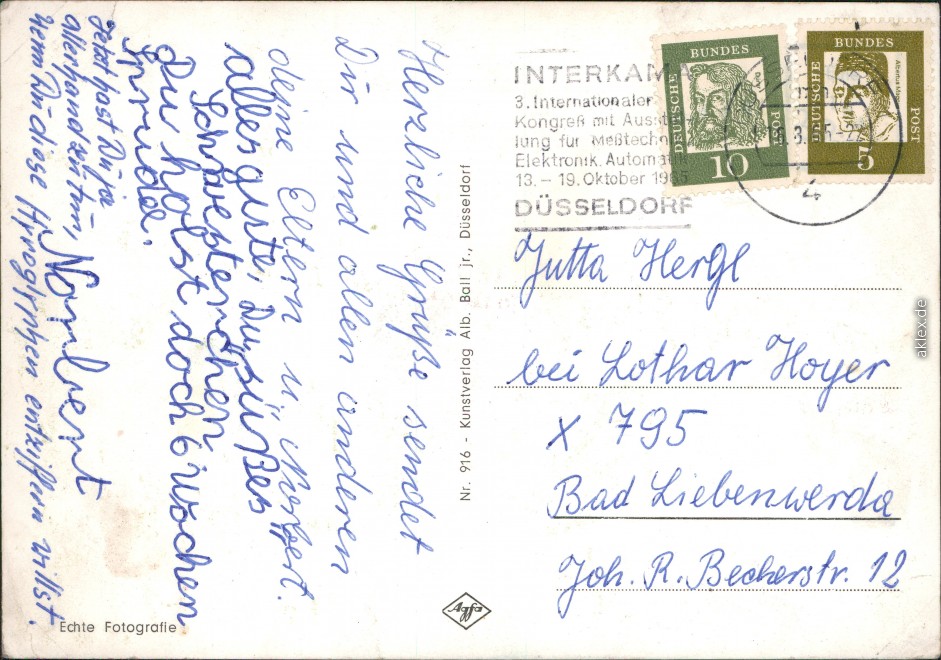 Herzliche Grüße sendet
Dir und allen anderen
deine Eltern u. Norbert.
alles gute, Du süßes
Schwesterchen
Du holst doch 6 Wochen
Sprudel.
Jetzt hast Du ja
allerhand zu tun,
wenn Du diese Hyroglyphen entziffern willst.
Norbert
Nr. 916 - Kunstverlag Alb. Ball jr., Düsseldorf
Echte Fotografie
Agfa
INTERKAM
3. Internationaler
Kongreß mit Ausst
lung für Meßtechn
Elektronik, Automatik
13. - 19. Oktober 1965
DÜSSELDORF
DEUTSCHE
BUNDES
POST
10
DEUTSCHE
BUNDES
POST
5
4
Jutta Hergl
bei Lothar Hoyer
X 795
Bad Liebenwerda
Joh. R. Becherstr. 12
aklex.de